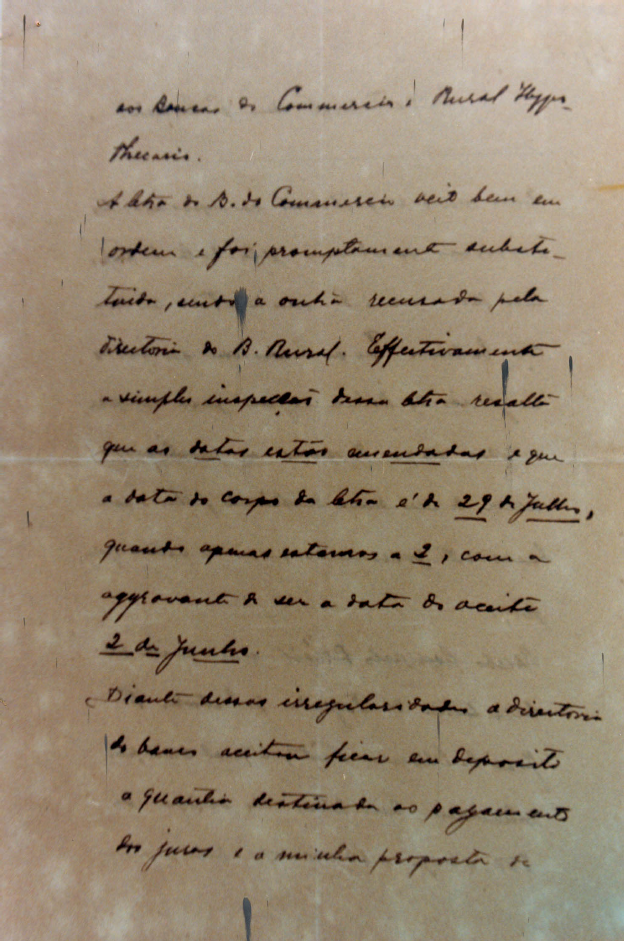 aos Bancos do Commercio e Rural Hypo-
thecario.
A letra do B. do Commercio veio bem em
ordem e foi promptamente substi-
tuida, sendo a outra recusada pela
directoria do B. Rural. Effectivamente
a simples inspecção dessa letra resalta
que as datas estão emendadas e que
a data do corpo da letra é de 29 de Julho,
quando apenas estamos a 2, com a
aggravante de ser a data do aceite
2 de Junho.
Diante dessas irregularidades a directoria
do banco aceitou ficar em deposito
a quantia destinada ao pagamento
dos juros e a minha proposta de